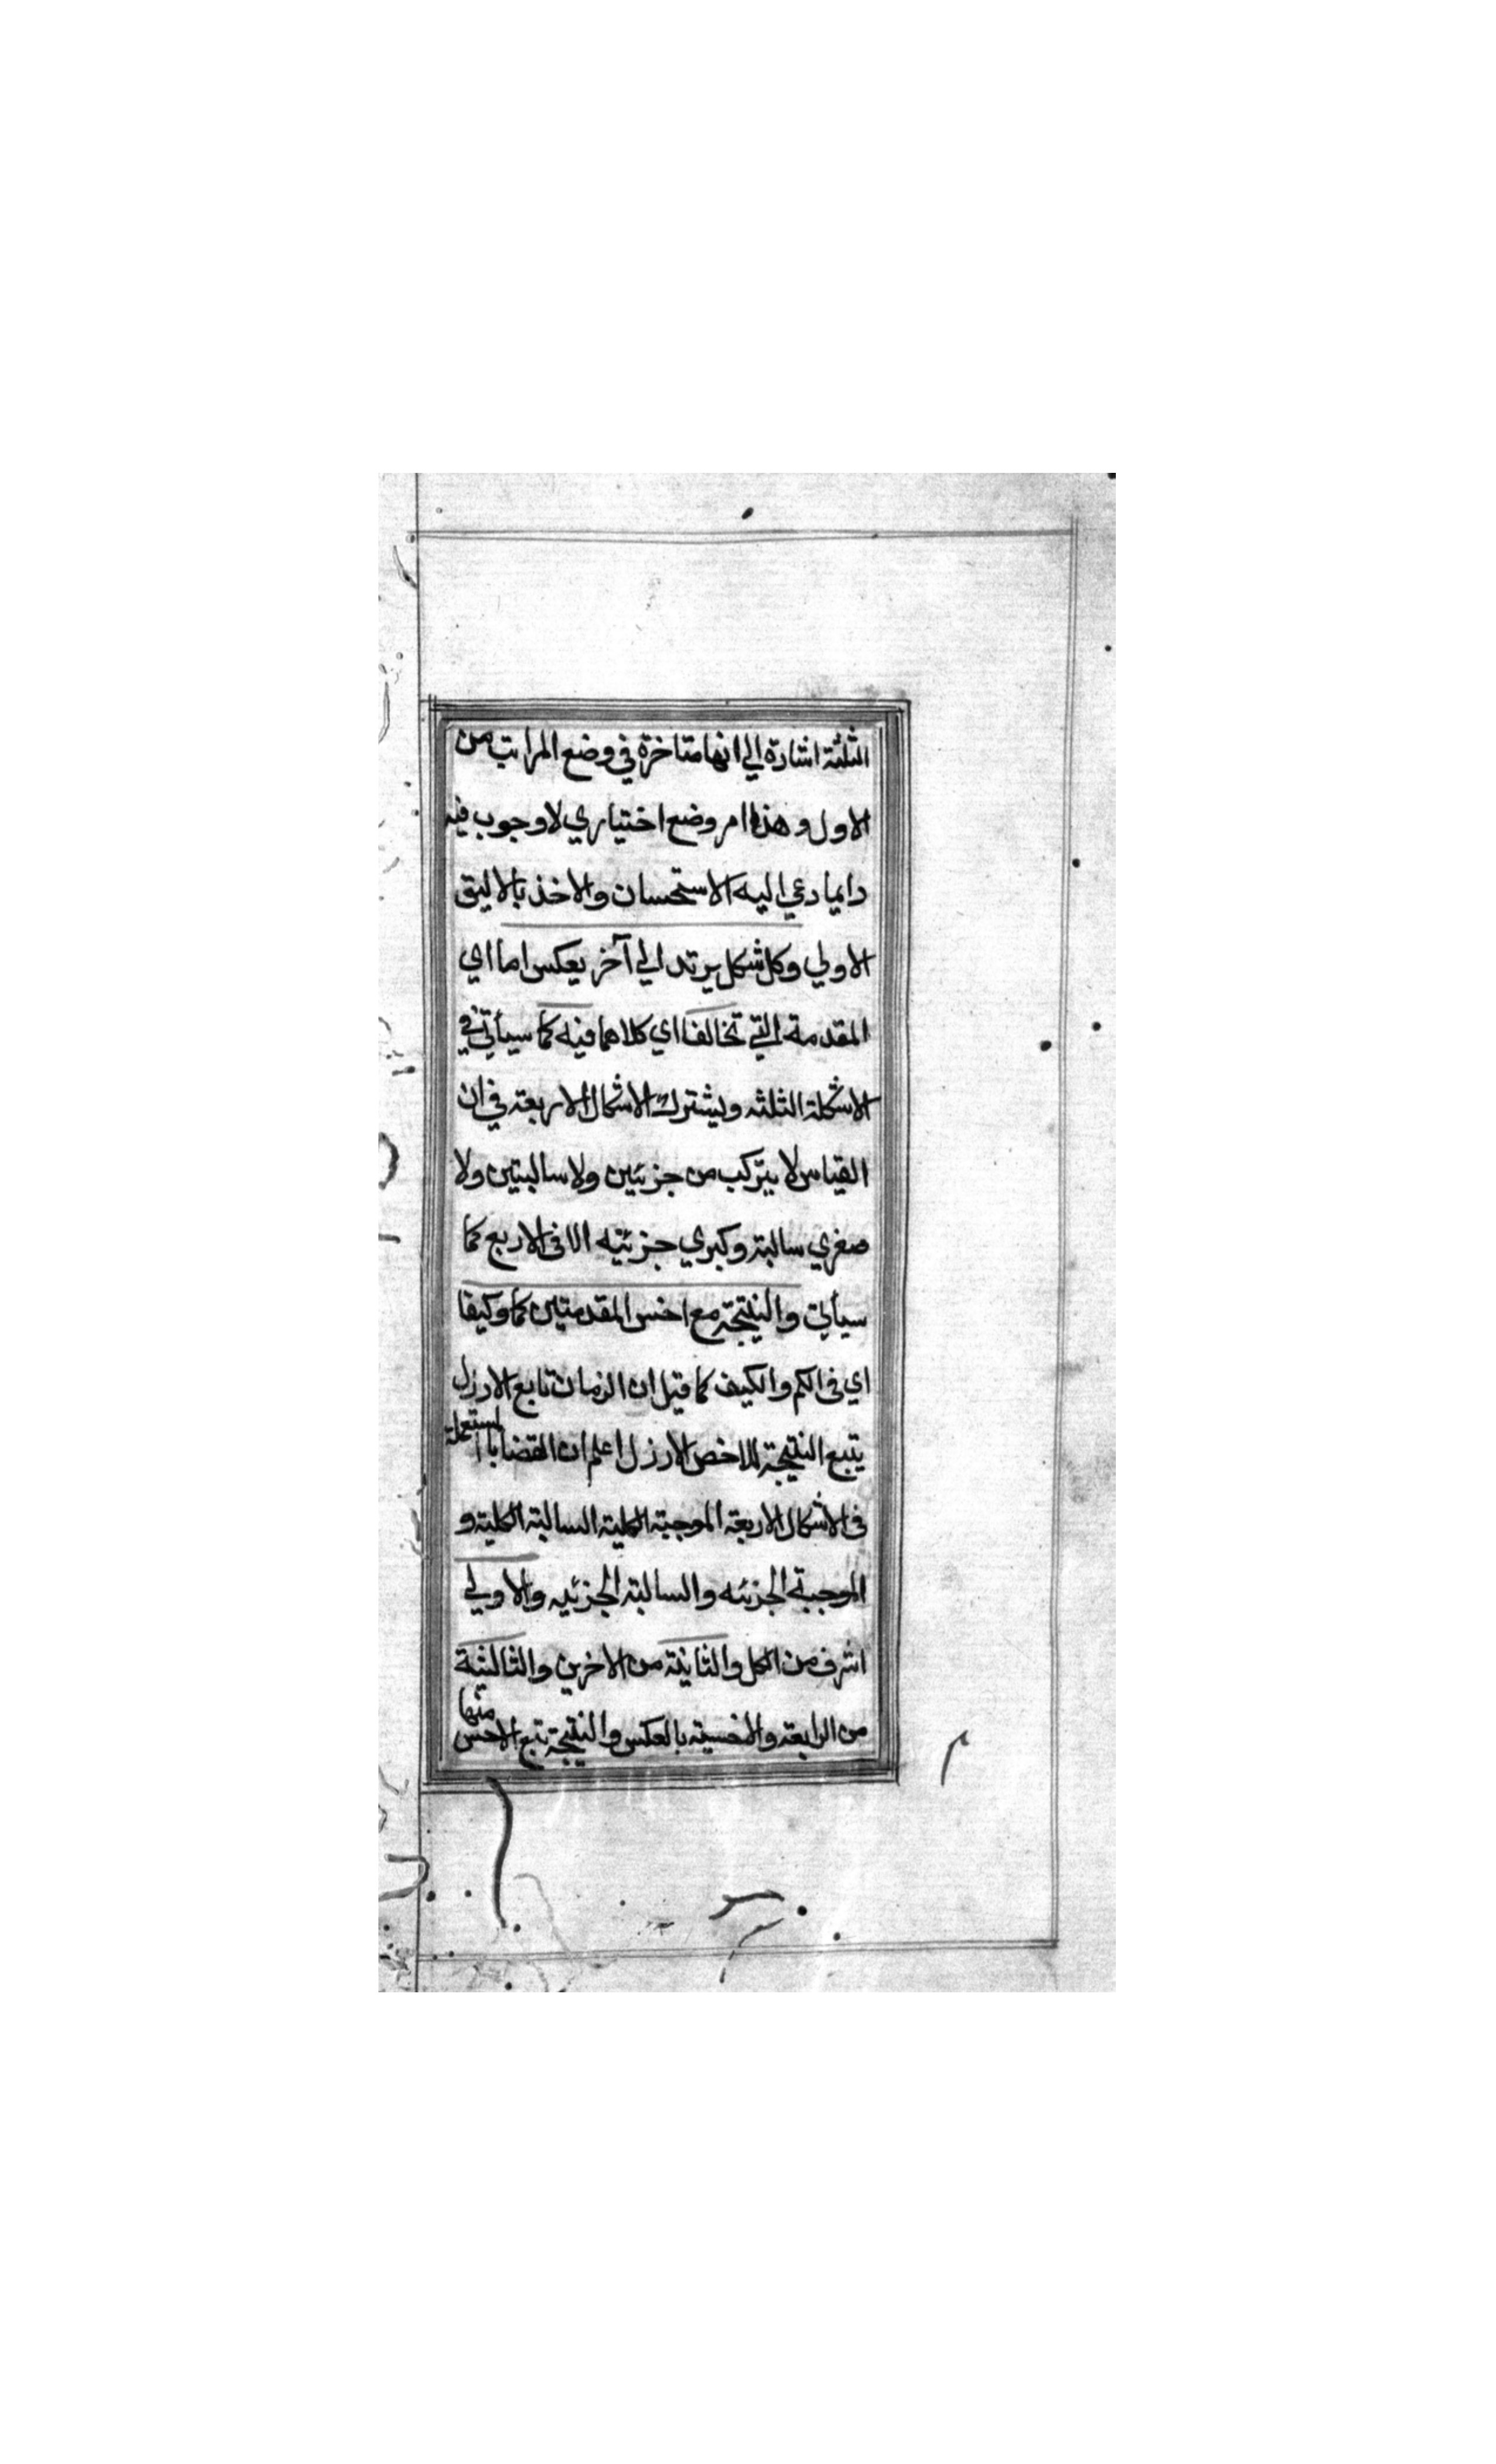 الثلثة اشارة الي انها متاخرة في وضع المراتب من
الاول و هذا امر وضع اختياري لا وجوب فيه
دايما دعي اليه الاستحسان والاخذ بالاليق
الاولي وكل شكل يرتد الي آخر يعكس اما اي
المقدمة التي تخالفا اي كلاهما فيه كما سيأتي في
الاشكلة الثلثه ويشترك الاشكال الاربعة في ان
القياس لا يتركب من جزئين ولا سالبتين ولا
صغري سالبة وكبري جزئيه الا في الاربع كما
سيأتي والنتيجة مع اخس المقدمتين كما وكيفا
اي في الكم والكيف كما قيل ان الزمان تابع الارزل
يتبع النتيجة للاخص الارزل اعلم ان القضايا المستعملة
في الاشكال الاربعة الموجبة الكلية السالبة الكلية و
الموجبة الجزئه والسالبة الجزئيه والاولي
اشرف من الكل والثانية من الاخرين والثالثية
من الرابعة والاخسية بالعكس والنتيجة تتبع الاخس منها